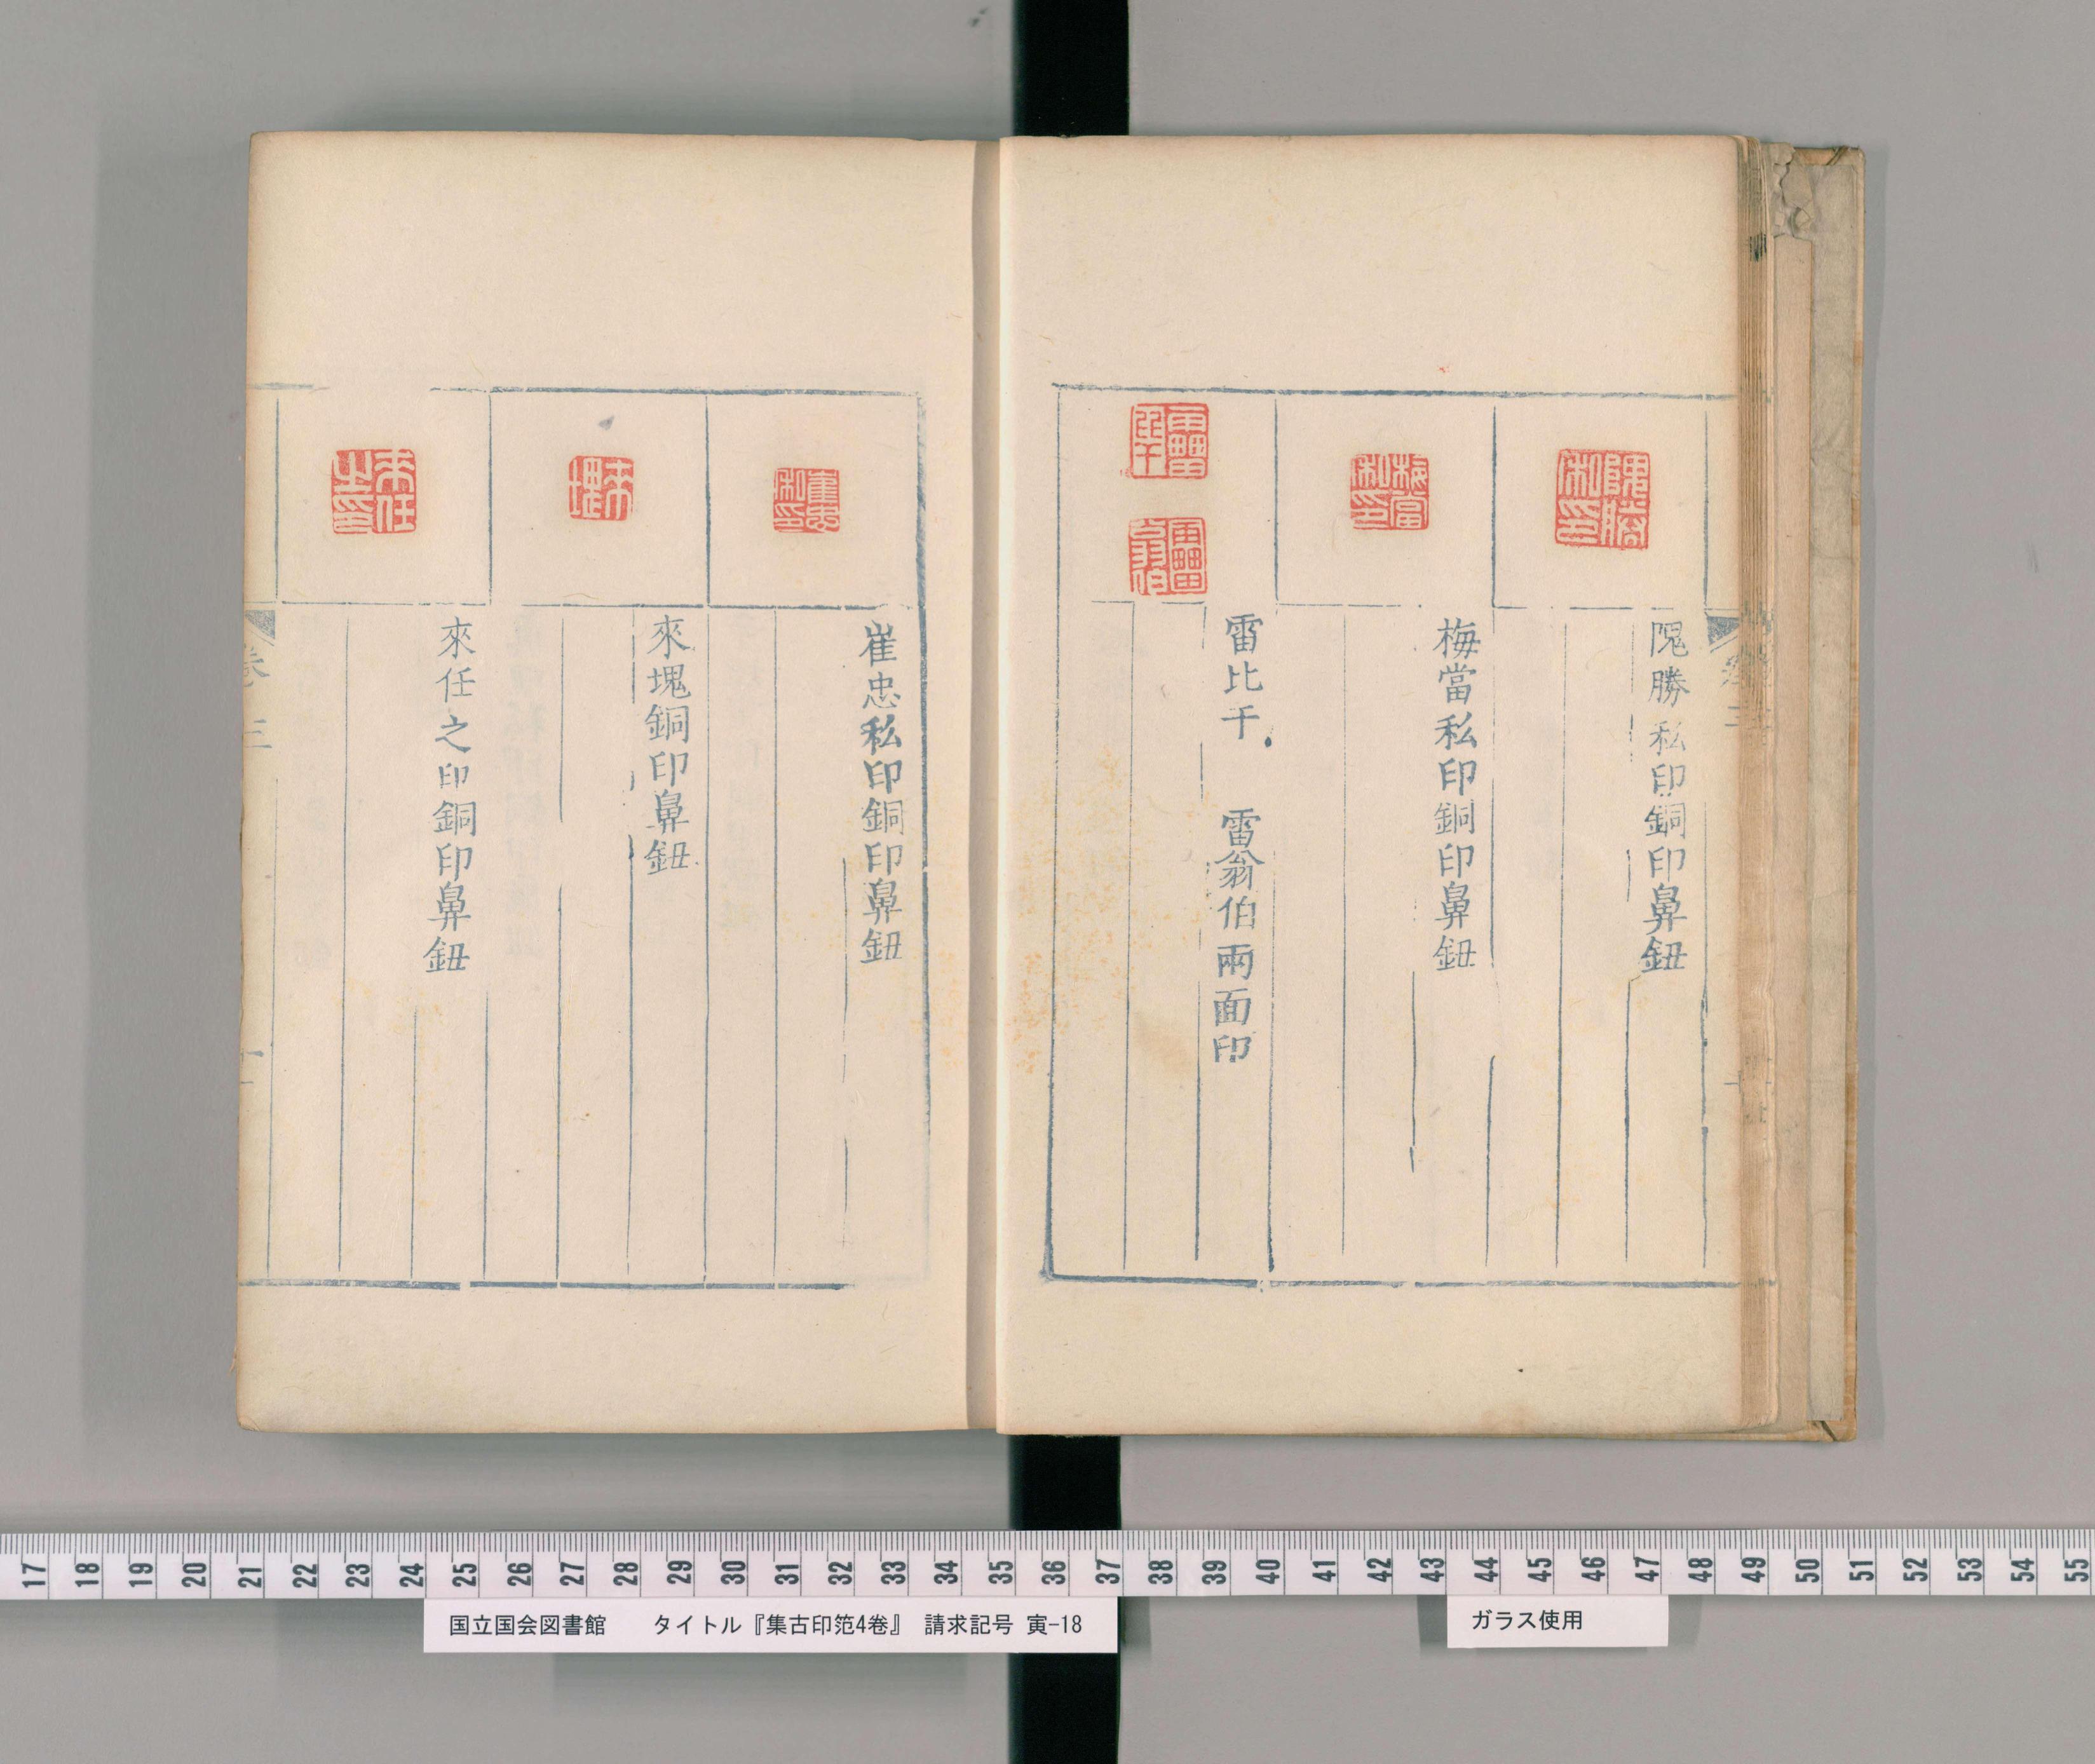 隗勝私印銅印鼻鈕
梅當私印銅印鼻鈕
雷比干 雷翁伯兩面印
崔忠私印銅印鼻鈕
來塊銅印鼻鈕
來任之印銅印鼻鈕
卷三
隗勝私印
梅當私印
崔忠私印
來塊
來任之印
17 18 19 20 21 22 23 24 25 26 27 28 29 30 31 32 33 34 35 36 37 38 39 40 41 42 43 44 45 46 47 48 49 50 51 52 53 54 55
国立国会図書館 タイトル『集古印笵4巻』 請求記号 寅-18
ガラス使用